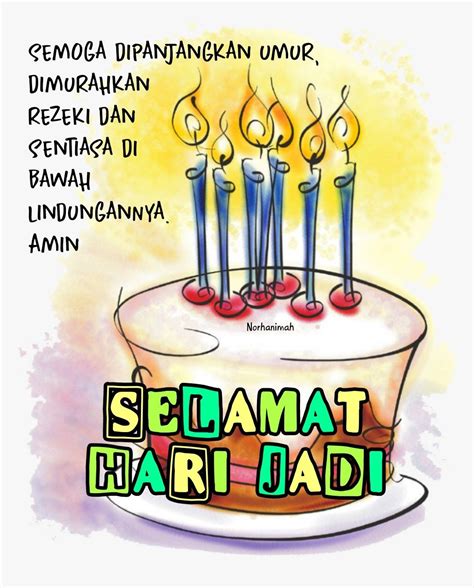 SEMOGA DIPANJANGKAN UMUR,
DIMURAHKAN
REZEKI DAN
SENTIASA DI
BAWAH
LINDUNGANNYA.
AMIN
Norhanimah
SELAMAT
HARI JADI